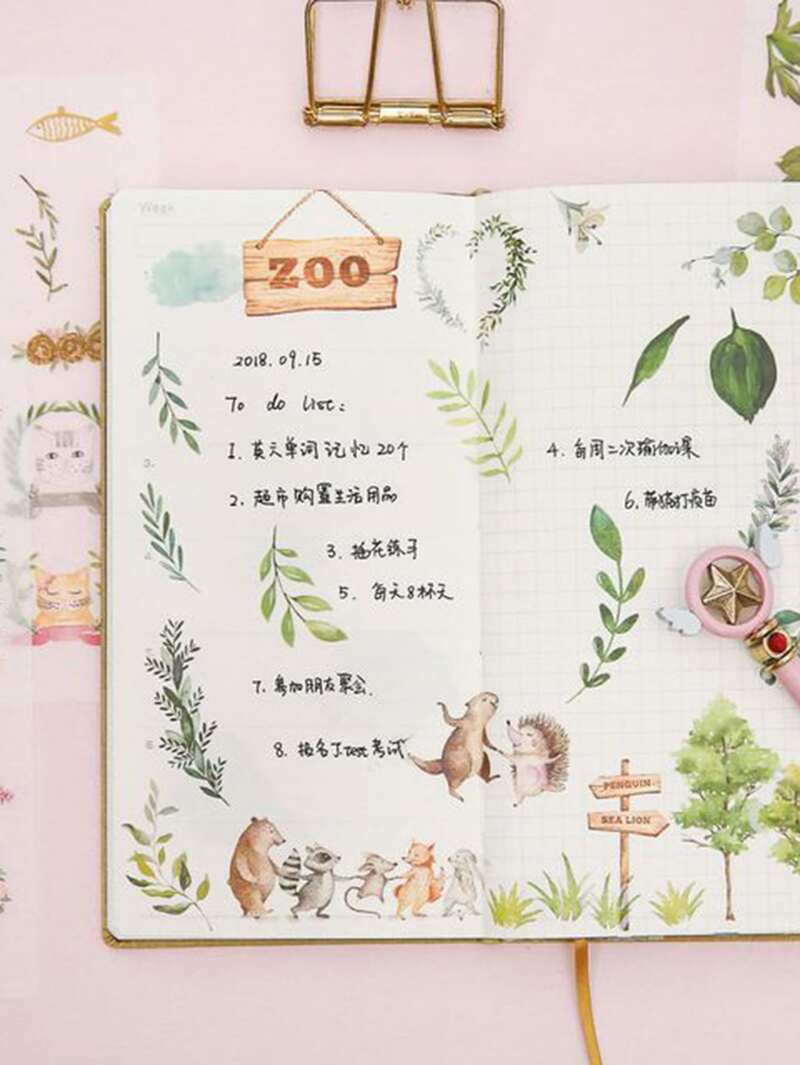 Week
ZOO
2018.09.15
To do list:
1. 英文单词记忆20个
2. 超市购置生活用品
3. 插花练习
5. 每天8杯水
7. 参加朋友聚会.
8. 报名Jtest考试
4. 每周二次瑜伽课
6. 打疫苗
PENGUIN
SEA LION